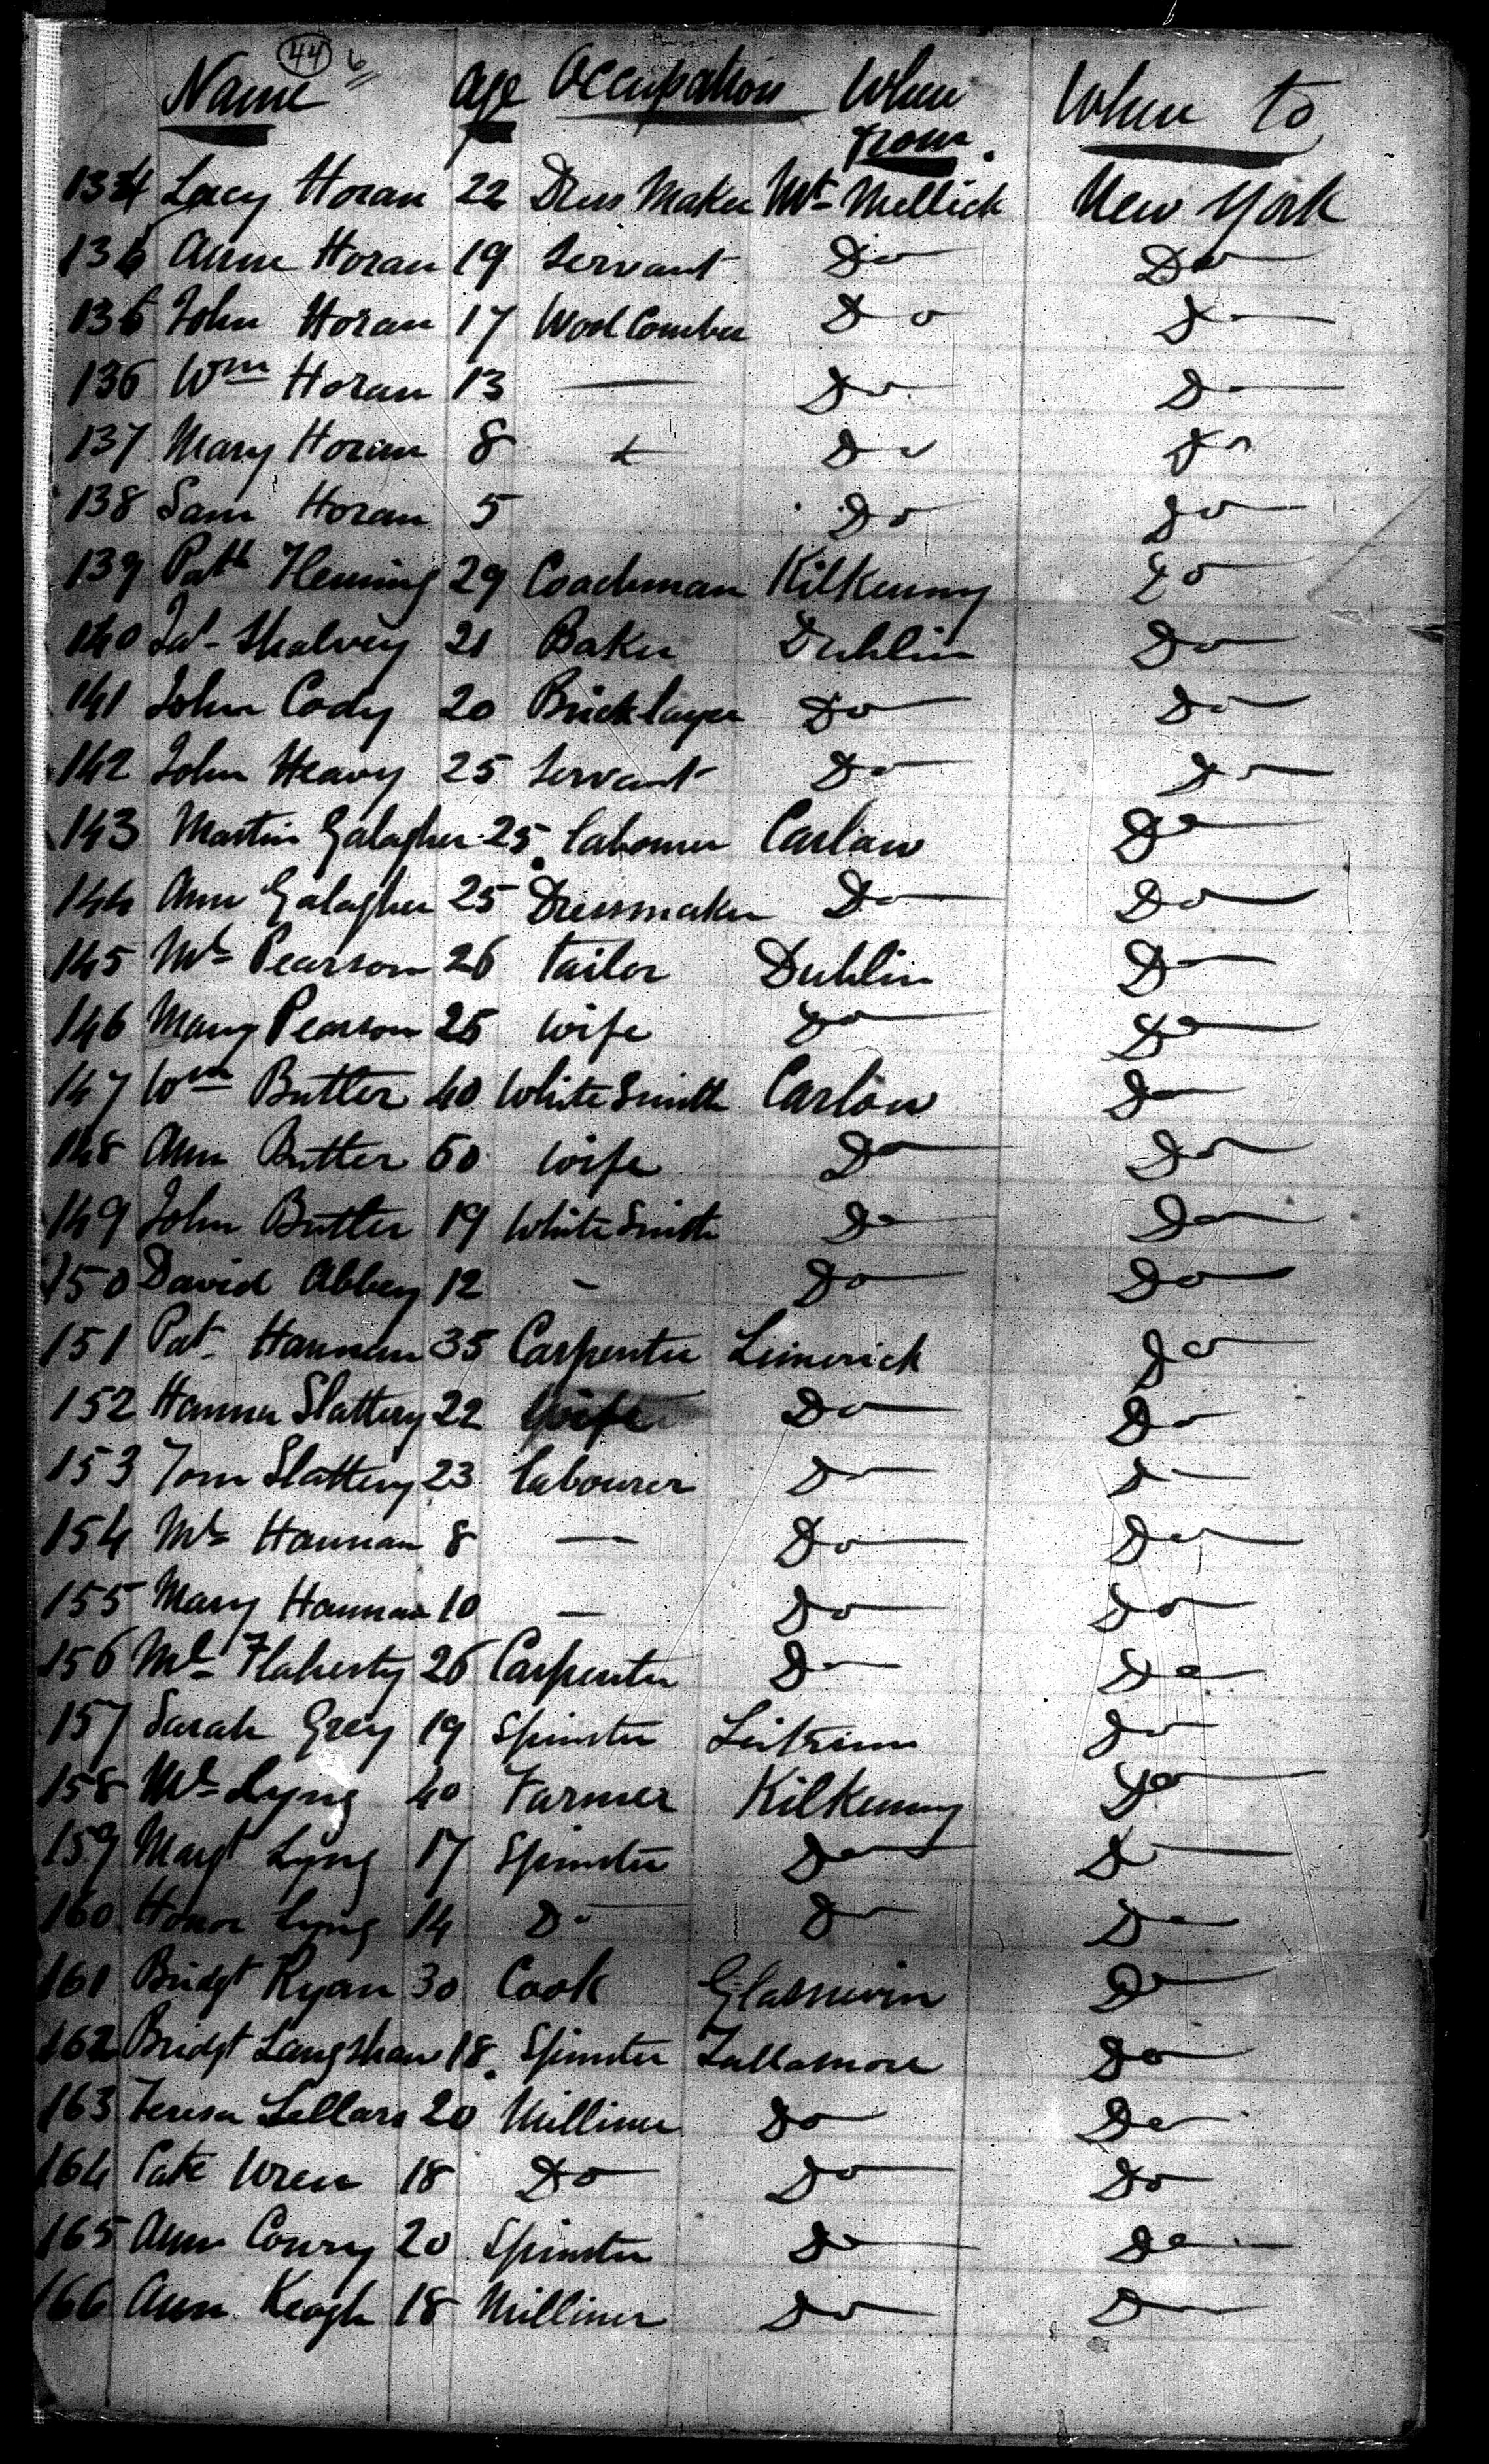 44 6
Name Age Occupation When from. When to
1334 Lucy Horan 22 Dress Maker Mt Mellick New York
135 Anne Horan 19 Servant Do Do
135 John Horan 17 Wool Comber Do Do
136 Wm Horan 13 — Do Do
137 Mary Horan 8 Do Do
138 Sam Horan 5 Do Do
139 Patk Fleming 29 Coachman Kilkenny Do
140 Shalvey 21 Baker Dublin Do
141 John Cody 20 Bricklayer Do Do
142 John Heavy 25 Servant Do Do
143 Martin Galagher 25 labourer Carlow Do
144 Ann Galagher 25 Dressmaker Do Do
145 Ml Pearson 26 tailor Dublin Do
146 Mary Pearson 25 wife Do Do
147 Wm Butler 40 White Smith Carlow Do
148 Ann Butler 50 wife Do Do
149 John Butler 19 White Smith Do Do
150 David Abbey 12 - Do Do
151 Pat Hannan 35 Carpenter Limerick Do
152 Hanna Slattery 22 wife Do Do
153 Tom Slattery 23 labourer Do Do
154 Ml Hannan 8 — Do Do
155 Mary Hannan 10 — Do Do
156 Ml Flaherty 26 Carpenter Do Do
157 Sarah Grey 19 Spinster Leitrim Do
158 Ml Lyng 40 Farmer Kilkenny Do
159 Margt Lyng 17 Spinster Do Do
160 Honor Lyng 14 Do Do Do
161 Bridgt Ryan 30 Cook Glasnevin Do
162 Bridgt Langshaw 18 Spinster Tullamore Do
163 Teresa Sellars 20 Milliner Do Do
164 Cate Wren 18 Do Do Do
165 Ann Conry 20 Spinster Do Do
166 Ann Keogh 18 Milliner Do Do